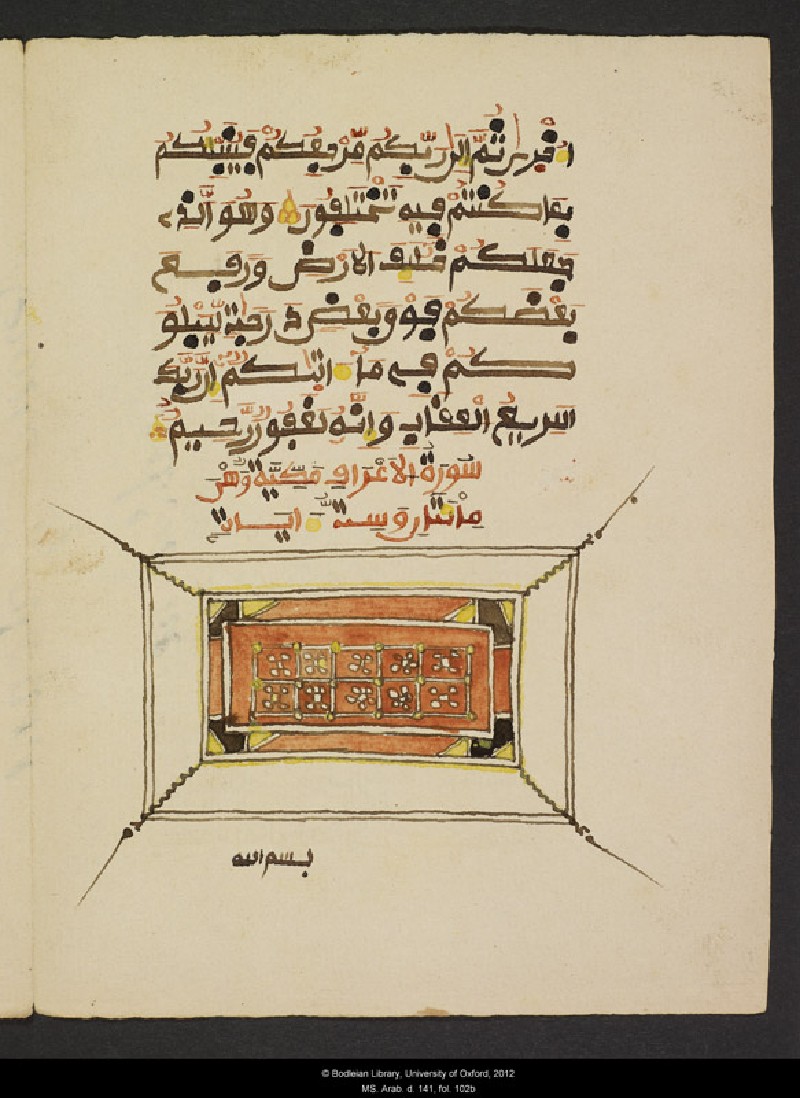 اخرى ثم الى ربكم مرجعكم فينبئكم
بما كنتم فيه تختلفون وهو الذي
جعلكم خلئف الارض ورفع
بعضكم فوق بعض درجت ليبلو
كم في ما اتيكم ان ربك
سريع العقاب وانه لغفور رحيم
سورة الاعراف مكية وهي
مائتان وستة ايات
بسم الله
© Bodleian Library, University of Oxford, 2012
MS. Arab. d. 141, fol. 102b